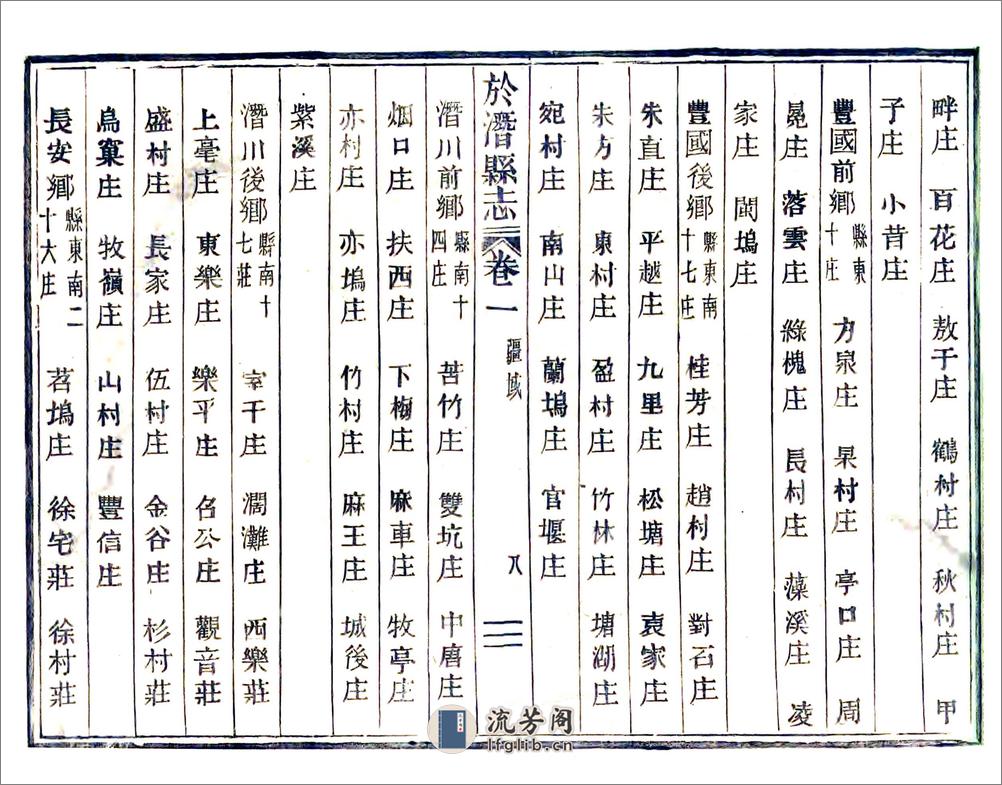 畔庄 百花庄 敖干庄 鶴村庄 秋村庄 甲
子庄 小昔庄
豐國前鄉縣東十庄 方泉庄 杲村庄 亭口庄 周
晃庄 落雲庄 綠槐庄 長村庄 藻溪庄 凌
家庄 閔塢庄
豐國後鄉縣東南十七庄 桂芳庄 趙村庄 對石庄
朱直庄 平越庄 九里庄 松塘庄 袁家庄
朱方庄 東村庄 盈村庄 竹林庄 塘湖庄
宛村庄 南山庄 蘭塢庄 官堰庄
於潛縣志 卷一 疆域 八
潛川前鄉縣南十四庄 苦竹庄 雙坑庄 中唐庄
烟口庄 扶西庄 下梅庄 麻車庄 牧亭庄
亦村庄 亦塢庄 竹村庄 麻王庄 城後庄
紫溪庄
潛川後鄉縣南十七莊 室干庄 濶灘庄 西樂莊
上亳庄 東樂庄 樂平庄 名公庄 觀音莊
盛村庄 長家庄 伍村庄 金谷庄 杉村莊
烏窠庄 牧嶺庄 山村庄 豐信庄
長安鄉縣東南二十六庄 茗塢庄 徐宅莊 徐村莊
流芳阁
lfglib.cn